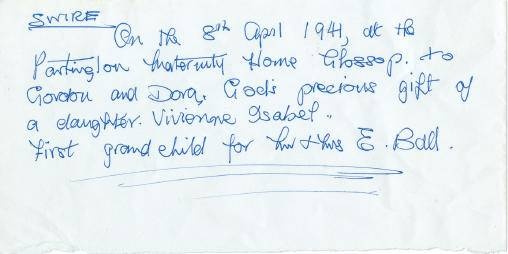 SWIRE
On the 8th April 1941, at the
Partington Maternity Home Glossop. to
Gordon and Dora, God's precious gift of
a daughter. Vivienne Isabel.
First grandchild for Mr & Mrs E. Ball.